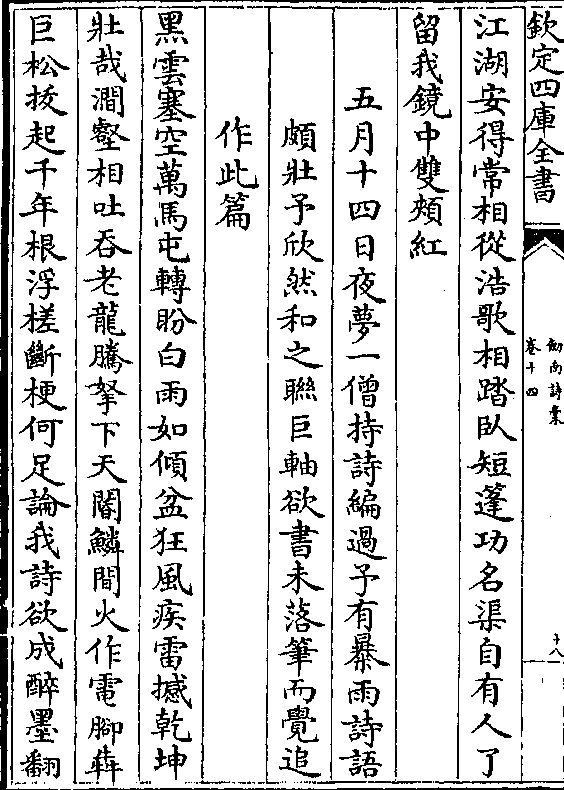 欽定四庫全書
劍南詩藁
卷十四
十八
江湖安得常相從浩歌相踏臥短蓬功名渠自有人了
留我鏡中雙頰紅
五月十四日夜夢一僧持詩編過予有暴雨詩語
頗壯予欣然和之聯巨軸欲書未落筆而覺追
作此篇
黒雲塞空萬馬屯轉盼白雨如傾盆狂風疾雷撼乾坤
壯哉澗壑相吐吞老龍騰拏下天閽鱗間火作電腳犇
巨松拔起千年根浮槎斷梗何足論我詩欲成醉墨翻